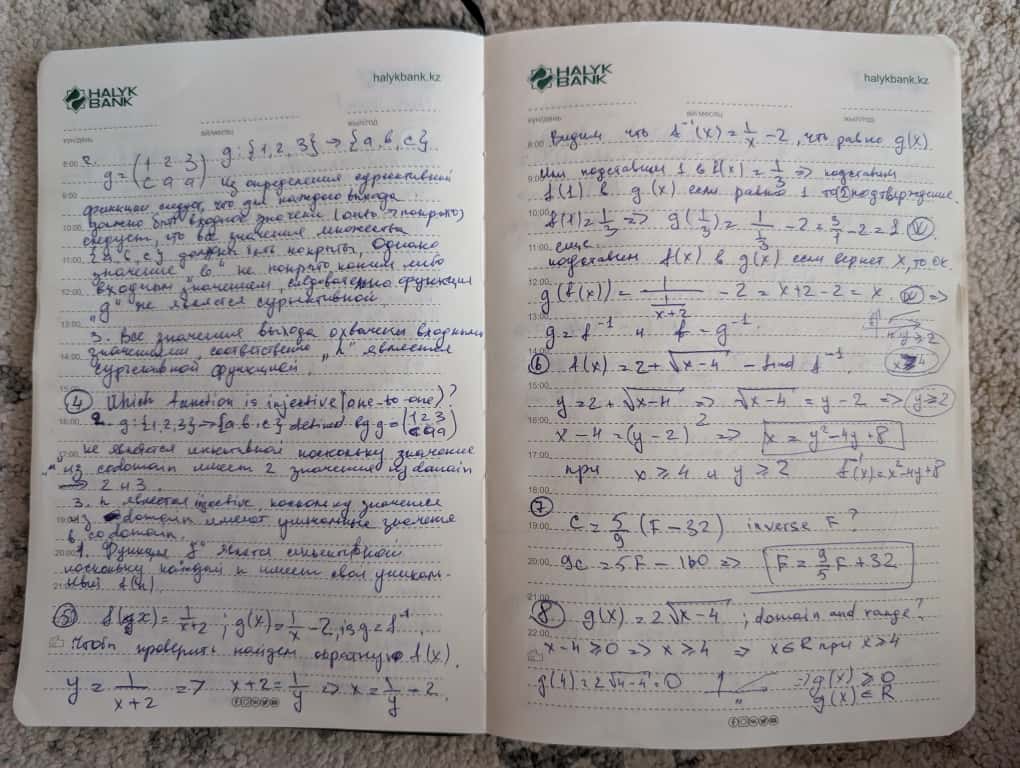 HALYK
BANK
halykbank.kz
күн/день
ай/месяц
жыл/год
8:00
2. g: {1, 2, 3} → {a, b, c}
g = (1 2 3
c a a) Из определения сурьективной
9:00
функции следует, что для каждого выхода
должно быть входное значение (onto → покрыто)
10:00
следует, что все значения множества
11:00
{a, b, c} должны быть покрыты, однако
значение "b" не покрыто каким либо
12:00
входным значением, следовательно функция
"g" не является сурьективной.
13:00
3. Все значения выхода охвачены входными
14:00
значениями, соответственно "h" является
сурьективной функцией.
15:00
④ Which function is injective (one-to-one)?
16:00
2. g: {1,2,3} → {a,b,c} defined by g = (1 2 3
c a a)
17:00
не является инъективной поскольку значение
"a" из codomain имеет 2 значения из domain
18:00
⇒ 2 и 3.
3. h является injective, поскольку значения
19:00
из domain имеют уникальные значения
в codomain.
20:00
1. Функция f является инъективной
поскольку каждый n имеет свой уникаль-
21:00
ный f(n).
⑤ f(x) = 1/(x+2) ; g(x) = 1/x − 2, is g = f⁻¹.
Чтобы проверить найдем обратную f(x).
y = 1/(x+2) ⇒ x+2 = 1/y ⇒ x = 1/y − 2.
HALYK
BANK
halykbank.kz
күн/день
ай/месяц
жыл/год
8:00
Видим что f⁻¹(x) = 1/x − 2, что равно g(x).
9:00
Или подставим 1 в f(x) = 1/3 ⇒ подставим
f(1) в g(x) если равно 1 то подтверждение.
10:00
f(1) = 1/3 ⇒ g(1/3) = 1/(1/3) − 2 = 3/1 − 2 = 1
11:00
еще
подставим f(x) в g(x) если вернет x, то ок.
12:00
g(f(x)) = 1/(1/(x+2)) − 2 = x+2−2 = x. ⇒
13:00
g = f⁻¹ и f = g⁻¹.
y ≥ 2
14:00
⑥ f(x) = 2+√(x−4) − find f⁻¹
x ≥ 4
15:00
y = 2+√(x−4) ⇒ √(x−4) = y − 2 ⇒ y ≥ 2
16:00
x − 4 = (y − 2)² ⇒ x = y² − 4y + 8
17:00
при x ≥ 4 и y ≥ 2 f⁻¹(x) = x² − 4x + 8
18:00
⑦
19:00
C = 5/9 (F − 32) inverse F?
20:00
9C = 5F − 160 ⇒ F = 9/5 F + 32
21:00
⑧ g(x) = 2√(x−4) ; domain and range?
22:00
x − 4 ≥ 0 ⇒ x ≥ 4 ⇒ x ∈ R при x ≥ 4
g(4) = 2√(4−4) = 0 ⇒ g(x) ≥ 0
g(x) ∈ R